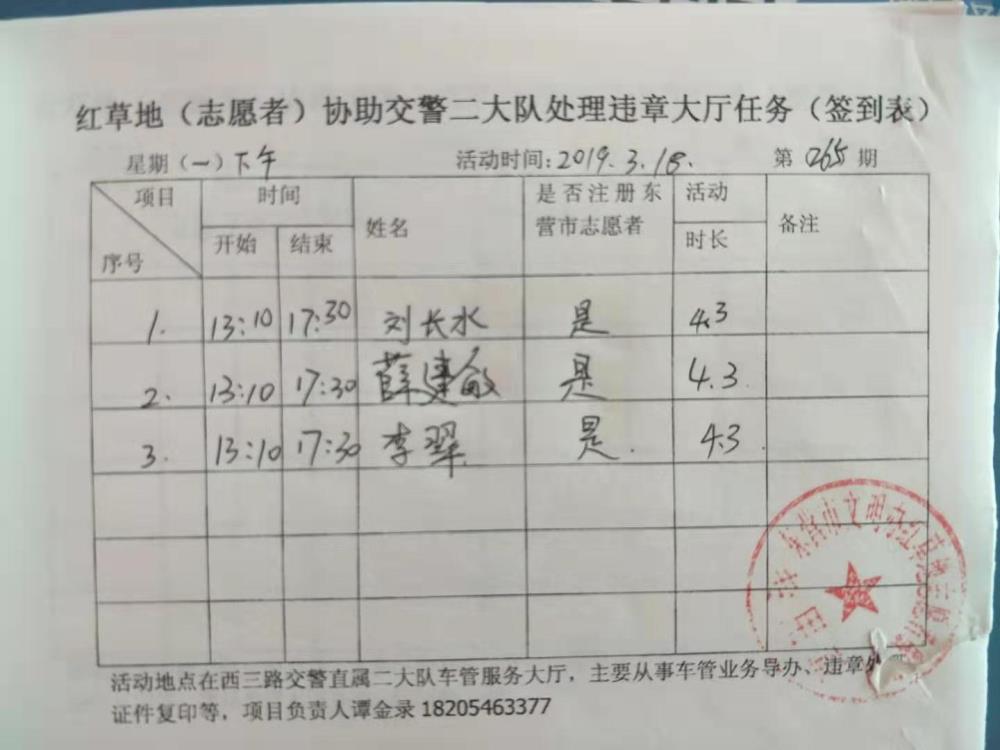 红草地（志愿者）协助交警二大队处理违章大厅任务（签到表）
星期（一）下午 活动时间：2019.3.18. 第 265 期
项目 时间 姓名 是否注册东营市志愿者 活动时长 备注
序号 开始 结束
1. 13:10 17:30 刘长水 是 4.3
2. 13:10 17:30 薛建敏 是 4.3
3. 13:10 17:30 李翠 是. 4.3
活动地点在西三路交警直属二大队车管服务大厅，主要从事车管业务导办、违章处
证件复印等，项目负责人谭金录 18205463377